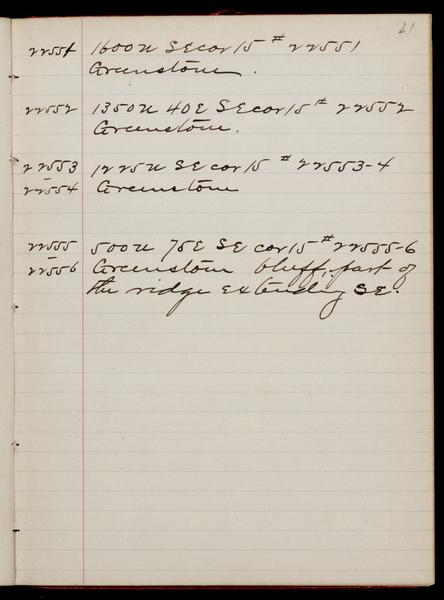 21
22551 1600N SE cor 15 # 22551
Greenstone.
22552 1350N 40E SE cor 15 # 22552
Greenstone.
22553 1225N SE cor 15 # 22553-4
- 22554 Greenstone
22555 500N 75E SE cor 15 # 22555-6
- 22556 Greenstone bluff, part of
the ridge extending SE.